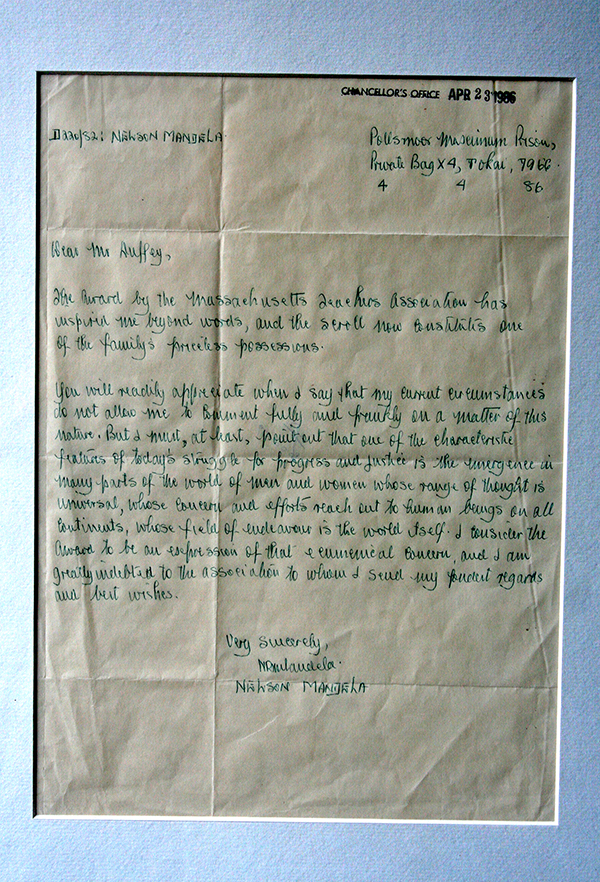 CHANCELLOR'S OFFICE APR 23 1986
D220/82: NELSON MANDELA
Pollsmoor Maximum Prison,
Private Bag X4, Tokai, 7966.
4 4 86
Dear Mr Duffey,
The award by the Massachusetts Teachers Association has
inspired me beyond words, and the scroll now constitutes one
of the family's priceless possessions.
You will readily appreciate when I say that my current circumstances
do not allow me to comment fully and frankly on a matter of this
nature. But I must, at least, point out that one of the characteristic
features of today's struggle for progress and justice is the emergence in
many parts of the world of men and women whose range of thought is
universal, whose concern and efforts reach out to human beings on all
continents, whose field of endeavour is the world itself. I consider the
award to be an expression of that ecumenical concern, and I am
greatly indebted to the association to whom I send my fondest regards
and best wishes.
Very sincerely,
NRMandela.
NELSON MANDELA